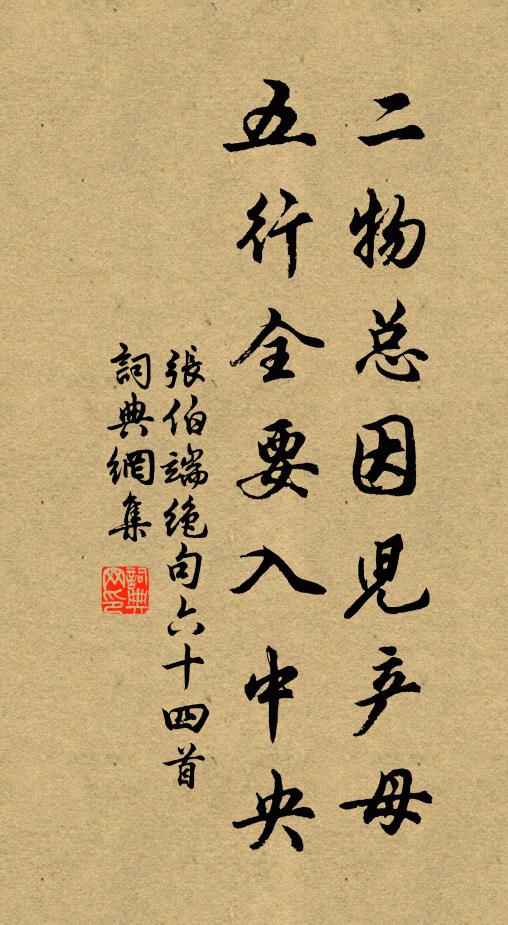 二物总因児产母
五行全要入中央
張伯端绝句六十四首
詞典網集
詞典网印